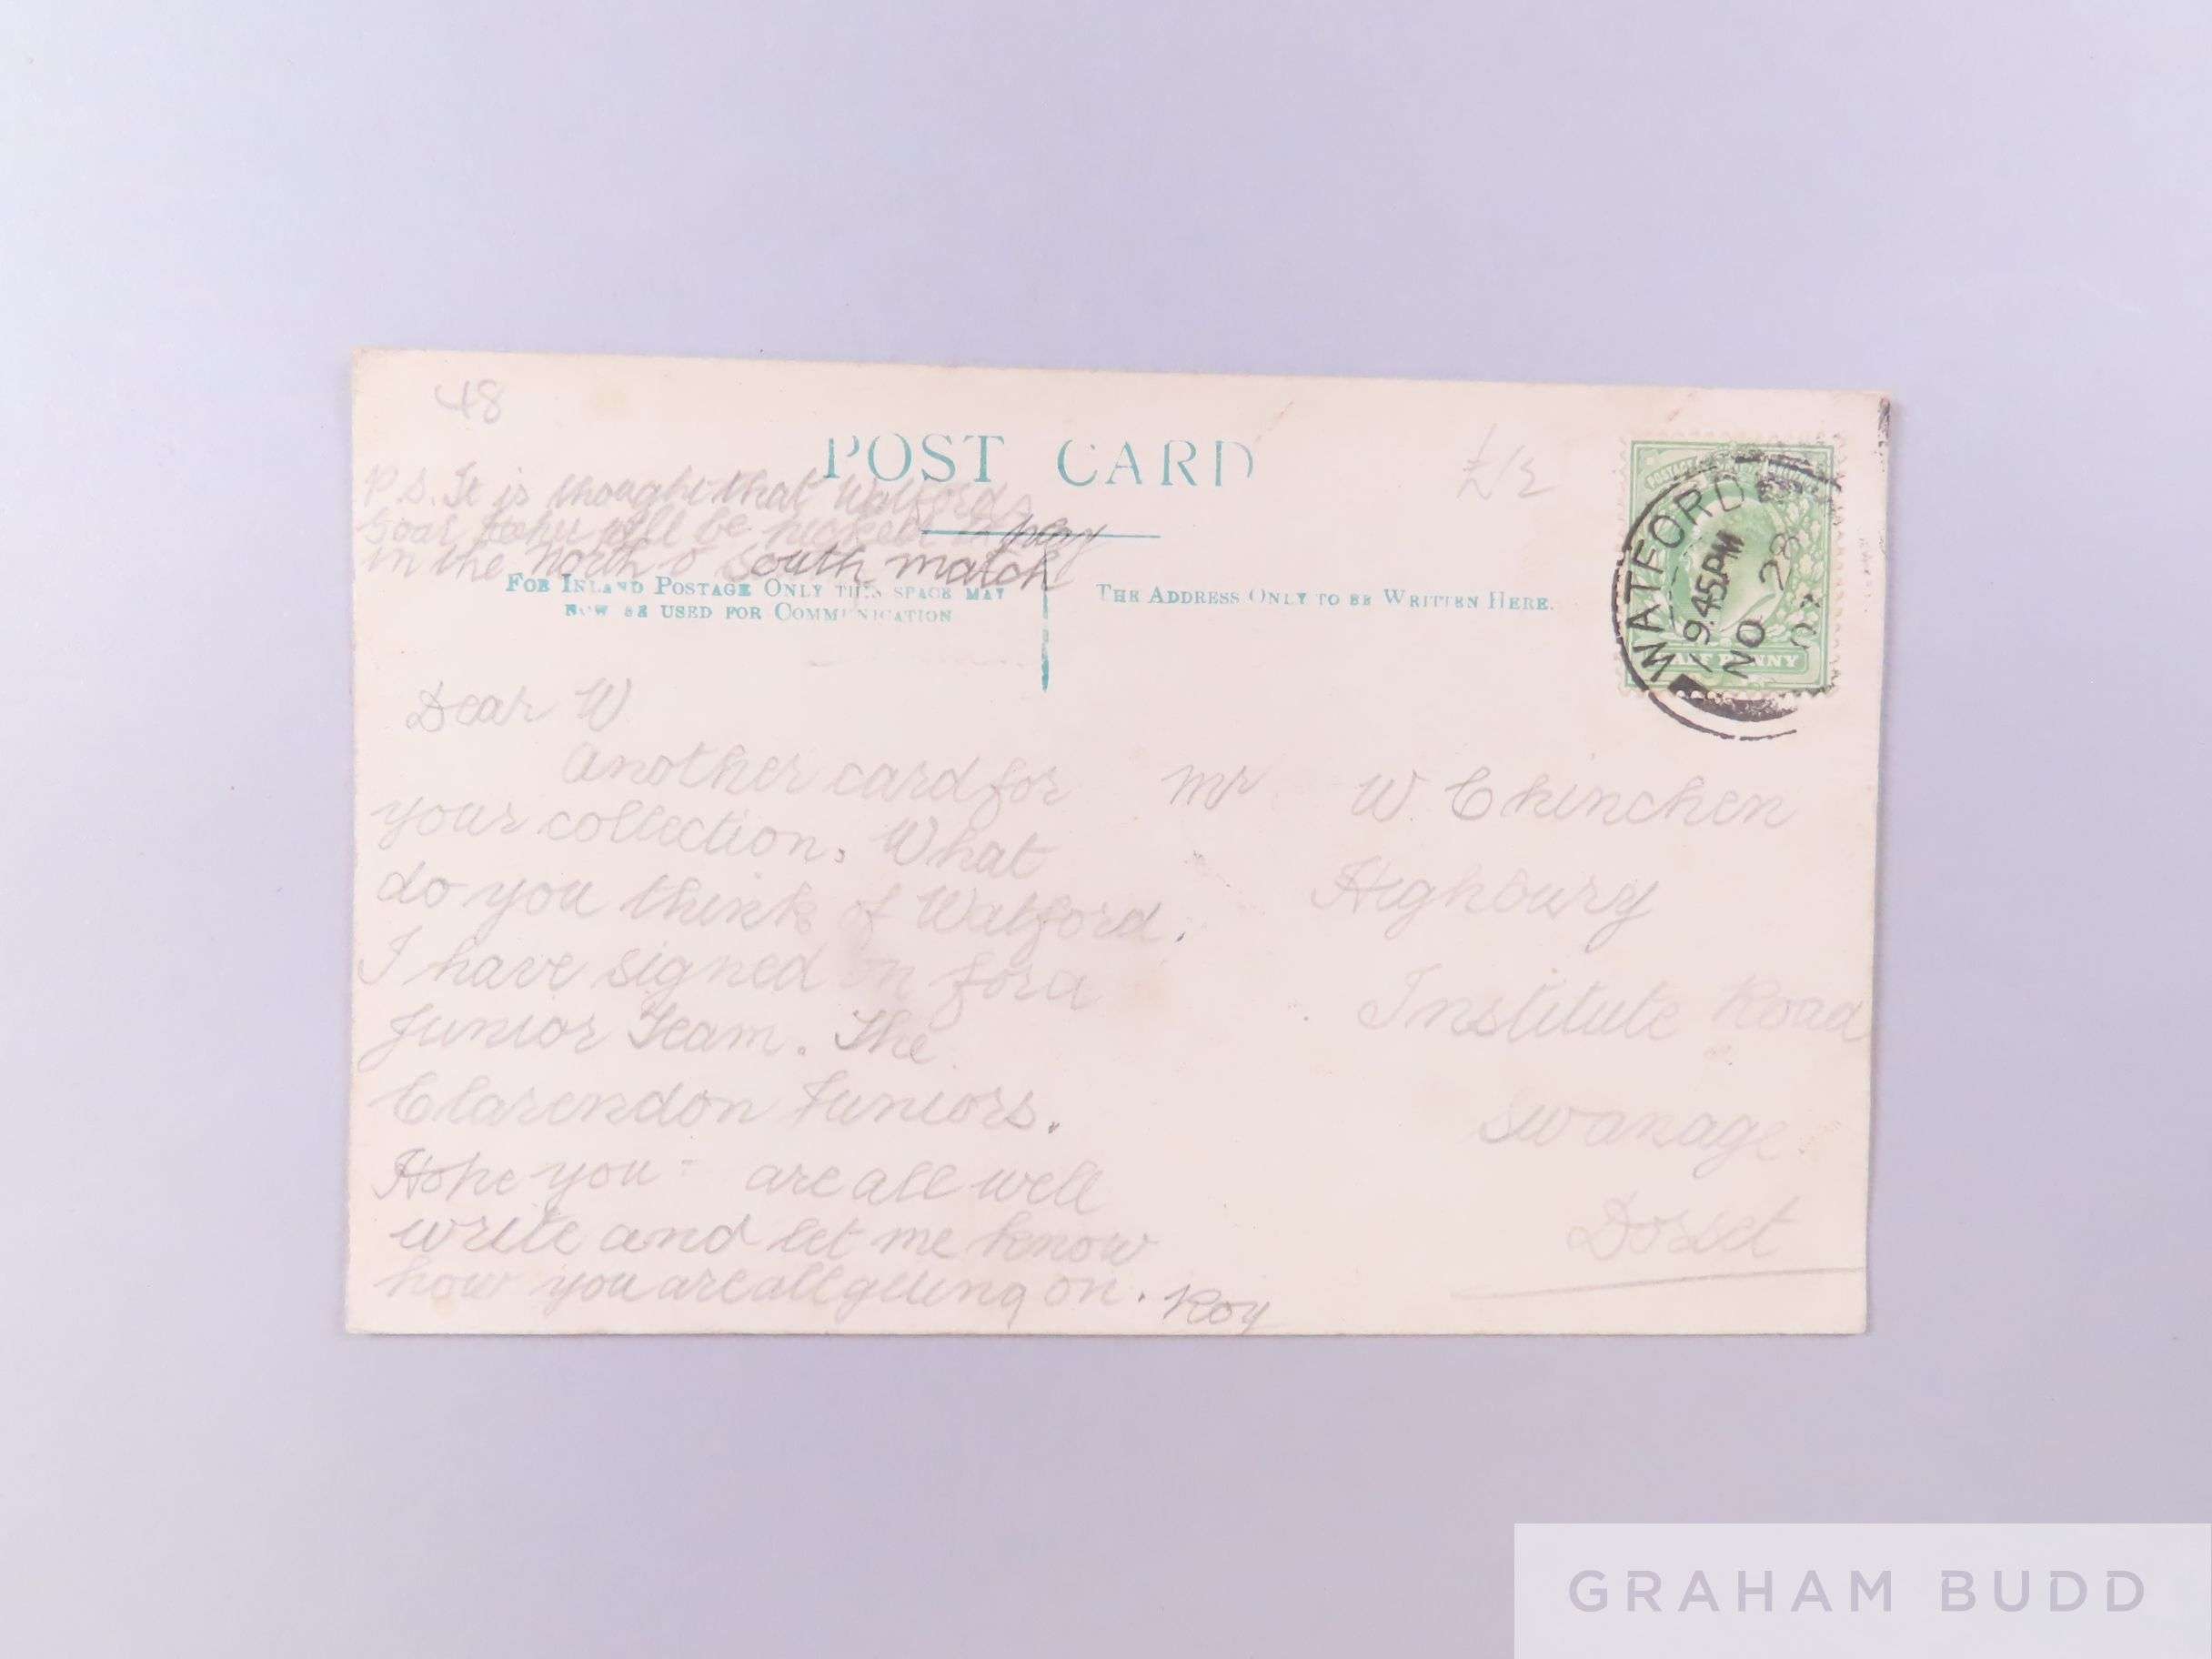 48
POST CARD
£12
P.S. It is thought that Watfords
Goal will be picked to play
in the North v South match
FOR INLAND POSTAGE ONLY THIS SPACE MAY
NOW BE USED FOR COMMUNICATION
THE ADDRESS ONLY TO BE WRITTEN HERE.
WATFORD
9.45PM
NO 28
07
HALF PENNY
Dear W
Another card for
your collection. What
do you think of Watford.
I have signed on for a
Junior Team. The
Clarendon Juniors.
Hope you are all well
write and let me know
how you are all getting on. Roy
Mr W. Chinchen
Highbury
Institute Road
Swanage
Dorset
GRAHAM BUDD